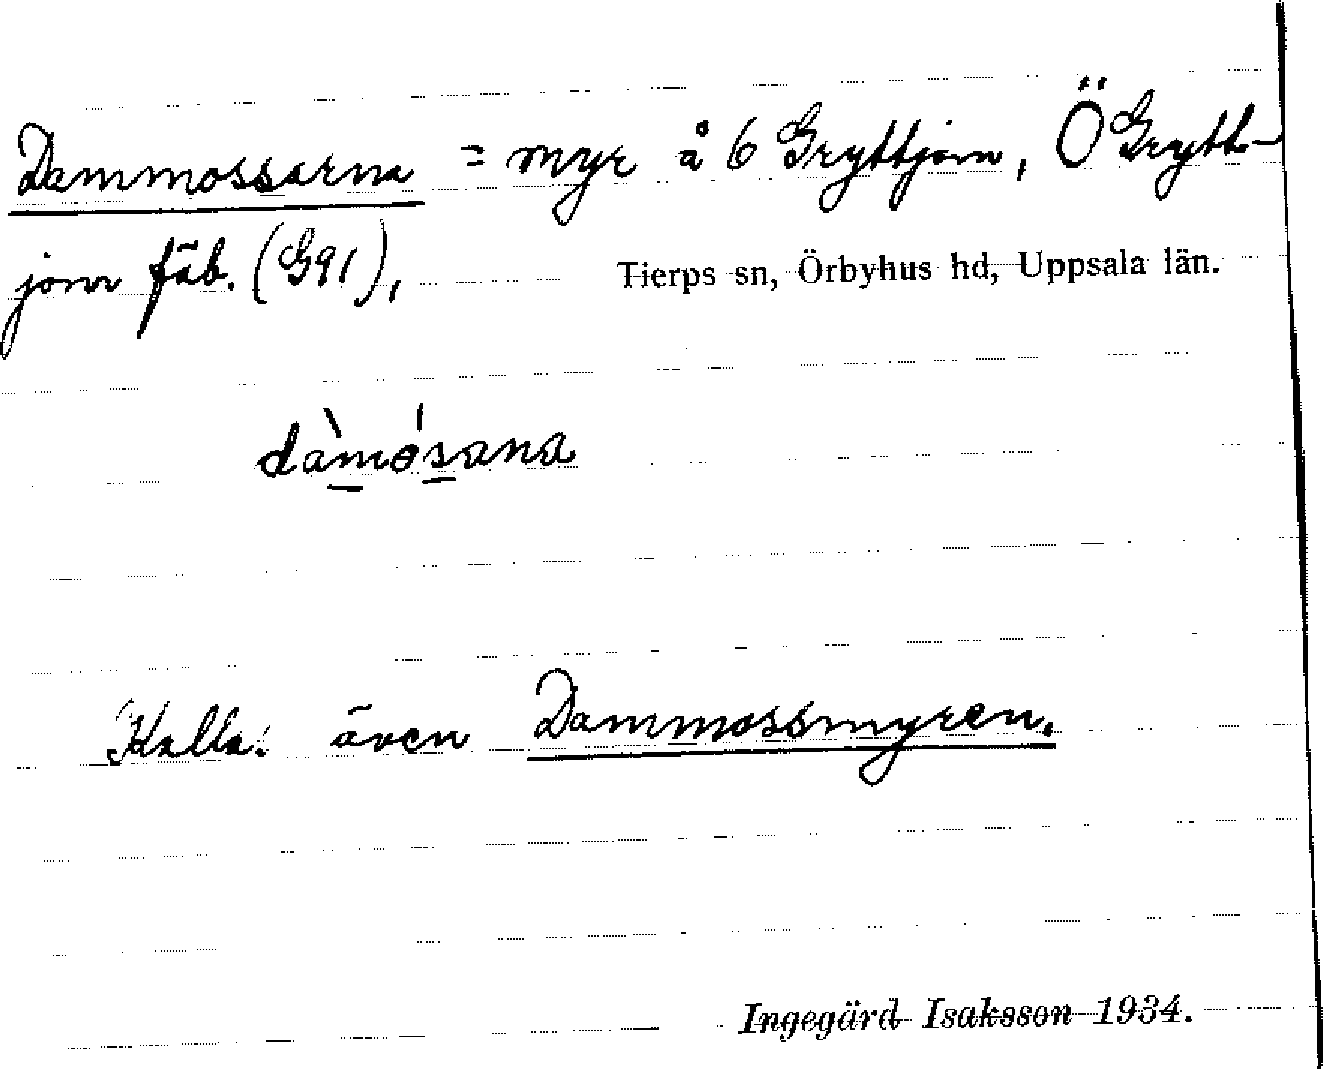 Dammossarna = myr å 6 Gryttjom, Ö Grytt-
jom fäb. (G91), Tierps sn, Örbyhus hd, Uppsala län.
dàmósana
Kalla: även Dammossmyren.
Ingegärd Isaksson 1934.